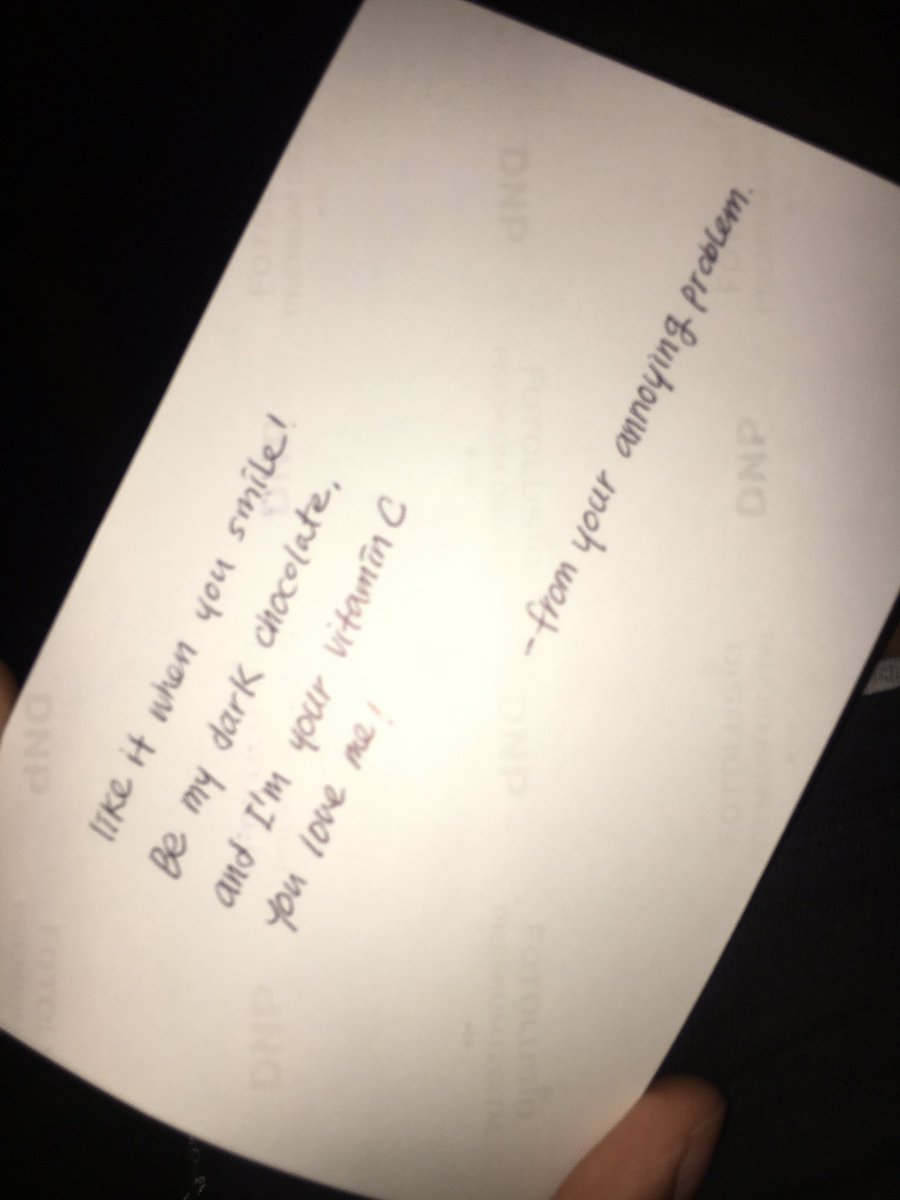 like it when you smile!
Be my dark chocolate,
and I'm your vitamin C
You love me!
-from your annoying problem.
DNP
DNP
DNP
DNP
DNP